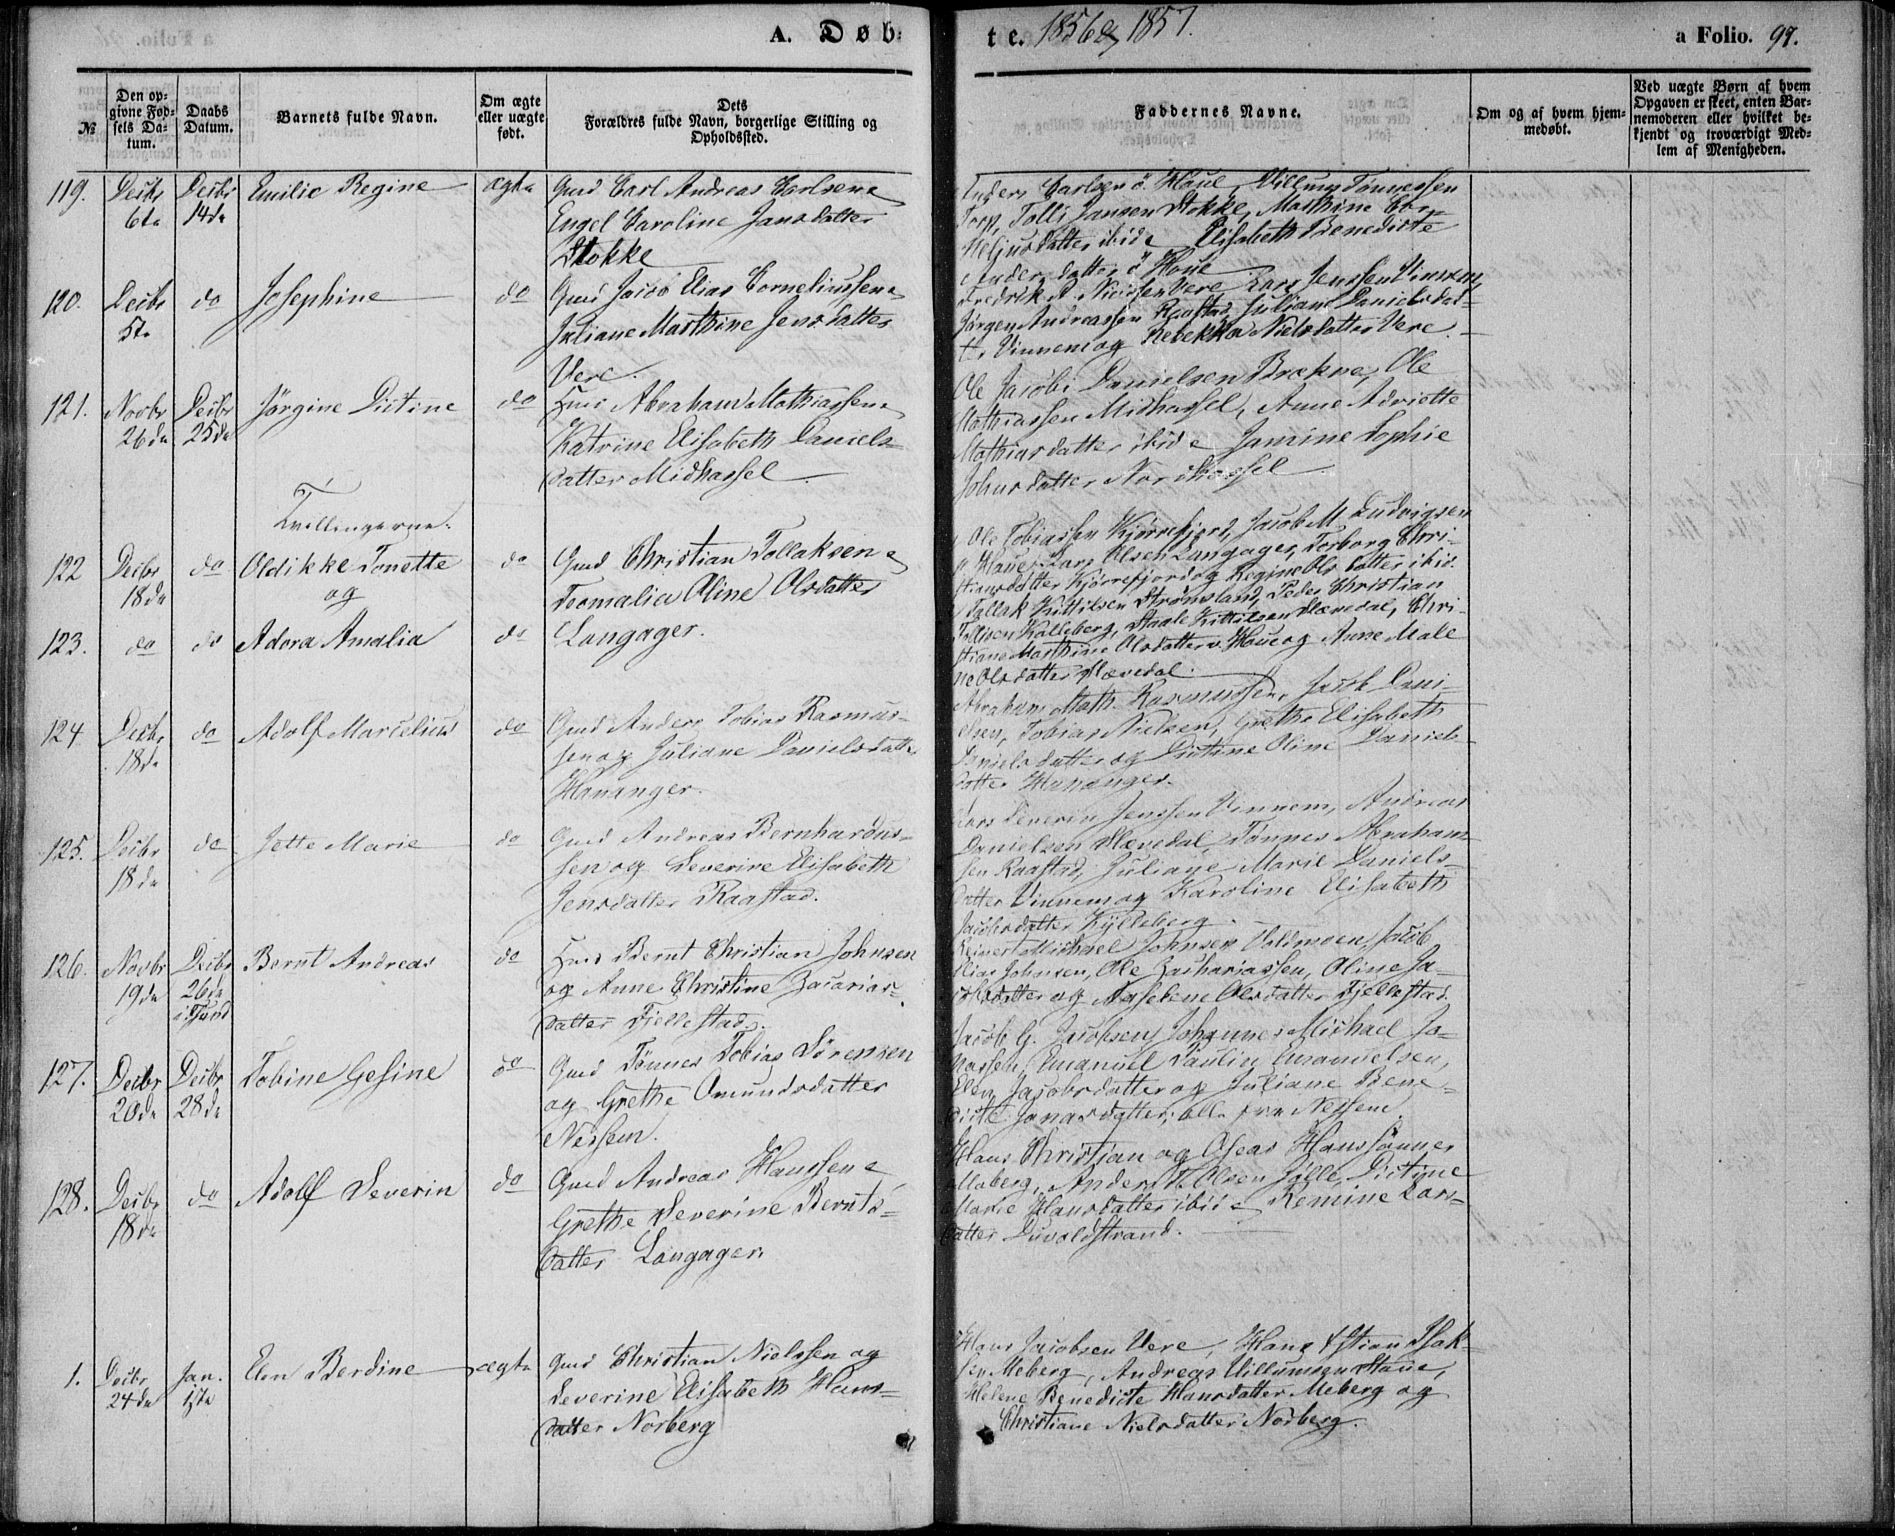 A. Døb-
te. 1856 & 1857.
a Folio. 97.
№
Den op-
givne Fød-
sels Da-
tum.
Daabs
Datum.
Barnets fulde Navn.
Om ægte
eller uægte
født.
Dets
Forældres fulde Navn, borgerlige Stilling og
Opholdssted.
Faddernes Navne.
Om og af hvem hjem-
medøbt.
Ved uægte Børn af hvem
Opgaven er skeet, enten Bar-
nemoderen eller hvilket be-
kjendt og troværdigt Med-
lem af Menigheden.
119.
Decbr
6te
Decbr
14de
Emilie Regine
ægte
Gmd Carl Andreas Carlsen &
Engel Caroline Jansdatter
Stokke
Anders Carlsen ö. Haue, Villum Tønnessen
Torp, Tolli Jansen Stokke, Marthine Cor-
neliusdatter ibid & Elisabeth Benedicte
Andersdatter ö Haue
120.
Decbr
5te
do
Josephine
do
Gmd Jacob Elias Corneliussen &
Juliane Marthine Jensdatter
Vere.
Fredrik A. Nielsen Vere, Lars Jenssen Vinnem,
Jørgen Andreassen Raastad, Juliane Danielsdat-
ter Vinnem og Rebekka Nielsdatter Vere.
121.
Novbr
26de
Decbr
25de
Jørgine Dictine
do
Huus Abraham Mathiassen &
Katrine Elisabeth Daniels-
datter Midhassel
Ole Jacob Danielsen Brekne, Ole
Mathiassen Midhassel, Anne Adriotte
Mathiasdatter ibid & Jamine Sophie
Johnsdatter Nordhassel
Tvillingerne:
122
Decbr
18de
do
Oldikke Tonette
og
do
Gmd Christian Tollaksen &
Tormalia Oline Olsdatter
Langager.
Ole Tobiassen Kjørrefjord, Jacob M Ludvigsen
v Haue, Lars Olsen Langager, Torborg Chri-
stiansdatter Kjørrefjord og Regine Olsdatter ibid.
123.
do
do
Adora Amalia
do
Tollak Kittilsen Strømsland, Peder Christian
Tollisen Kalleberg, Staale Kittilsen Hævedal, Chri-
stiane Marthine Olsdatter v. Haue og Anne Male
ne Olsdatter Hævedal.
124
Decbr
18de
do
Adolf Marcelius
do
Gmd Anders Tobias Rasmus-
sen og Juliane Danielsdatter
Hananger.
Abraham Math. Rasmussen, Jacob Dani-
elsen, Tobias Nielsen, Grethe Elisabeth
Danielsdatter og Dictine Oline Daniels
datter Hananger.
125.
Decbr
18de
do
Jette Marie
do
Gmd Andreas Bernhardus-
sen og Severine Elisabeth
Jensdatter Raastad.
Lars Severin Jenssen Vinnem, Andreas
Danielsen Hævedal, Tønnes Abraham-
sen Raastad, Juliane Marie Daniels-
datter Vinnem og Karoline Elisabeth
Jacobsdatter Kylleberg.
126.
Novbr
19de
Decbr
26de
i Sund
Bernt Andreas
do
Huus Bernt Christian Johnsen
og Anne Christine Zacarias-
datter Fjellestad.
Reinert Michael Johnsen Voldmoen, Jacob
Elias Johnsen, Ole Zachariassen, Oline Ja-
cobsdatter og Asselene Olsdatter Fjellestad.
127.
Decbr
20de
Decbr
28de
Tobine Gesine
do
Gmd Tønnes Tobias Sørensen
og Grethe Omundsdatter
Nessem.
Jacob G. Jacobsen, Johannes Michael Jo-
nassen, Emanuel Paulin Emanuelsen,
Elen Jacobsdatter og Juliane Bene-
dicte Jonasdatter, alle fra Nessem.
128.
Decbr
18de
do
Adolf Severin
do
Gmd Andreas Hanssen &
Grethe Severine Bernts-
datter Langager.
Hans Christian og Oseas Hanssønner
Meberg, Anders T Olsen Jølle, Dictine
Marie Hansdatter ibid & Remine Lars-
datter Duvoldstrand.
1.
Decbr
24de
Jan.
1ste
Elen Berdine
ægte
Gmd Christian Nielssen og
Severine Elisabeth Hans-
datter Norberg
Hans Jacobsen Vere, Hans Xstian Isak-
sen Meberg, Andreas Villumsen Haue,
Helene Benedicte Hansdatter Meberg og
Christiane Nielsdatter Norberg.